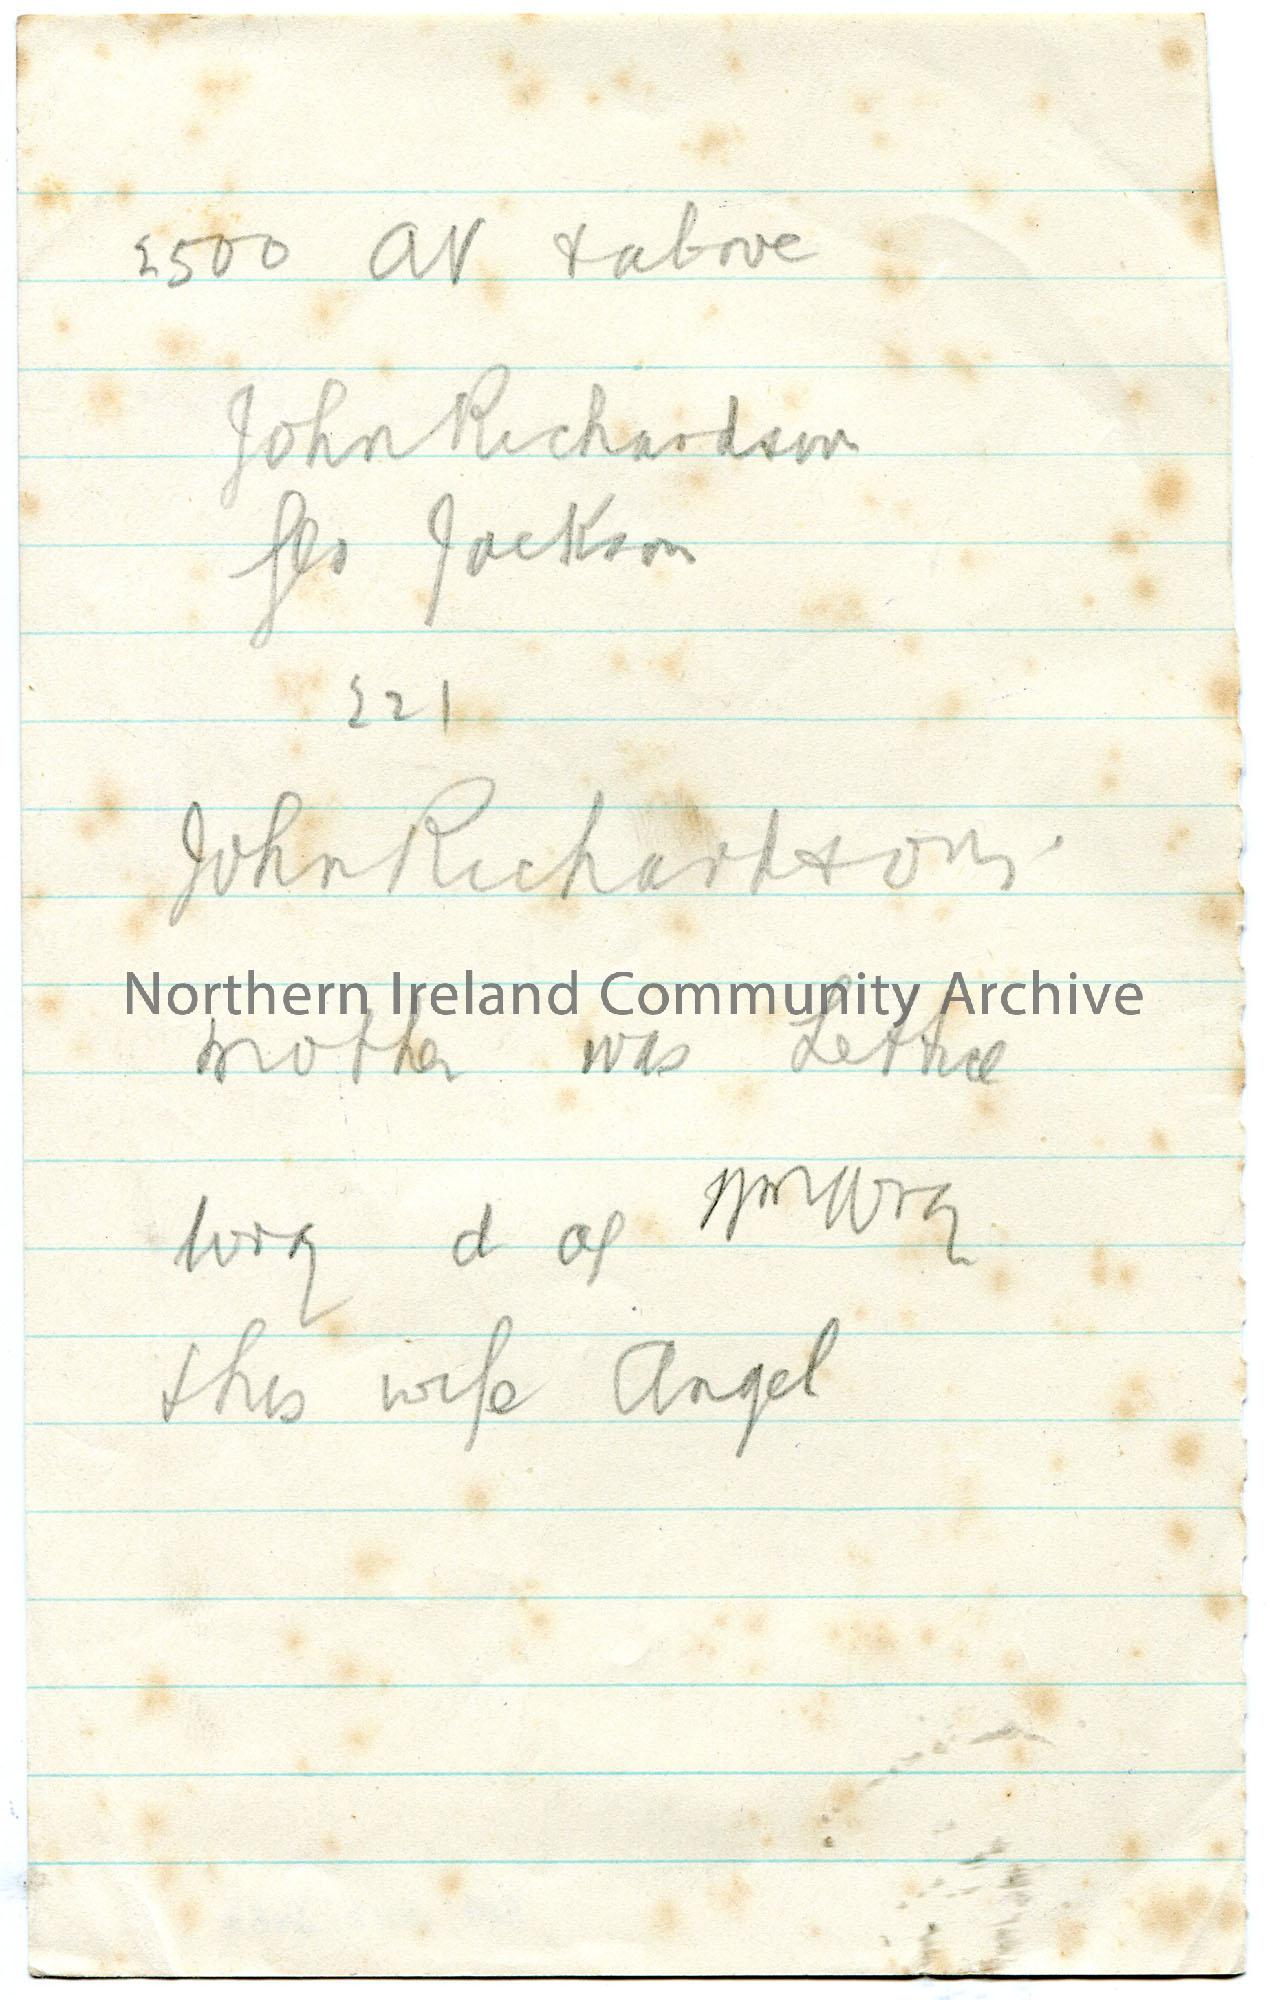 £500 AV & above
John Richardson
Geo Jackson
£21
John Richardson
Northern Ireland Community Archive
mother was Lettice
Wray d of Wm Wray
& his wife Angel